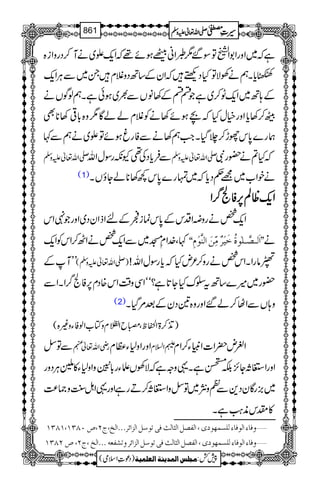 سیرتِ مصطفیٰ صلی اللہ تعالیٰ علیہ وسلم 861
ہے کہ میں اور ابوالشیخ تو سو گئے مگر طبرانی بیٹھے ہوئے تھے کہ ایک علوی نے آ کر دروازہ
کھٹکھٹایا۔ ہم نے دروازہ کھولا تو کیا دیکھتے ہیں کہ ان کے ساتھ دو غلام ہیں جن میں سے ہر ایک
کے ہاتھ میں ایک ٹوکری ہے جو قسم قسم کے کھانوں سے بھری ہوئی ہے۔ ہم لوگوں نے
بیٹھ کر کھایا اور خیال کیا کہ بچے ہوئے کھانے کو غلام لے لے گا مگر وہ باقی کھانا بھی
ہمارے پاس چھوڑ کر چلا گیا۔ جب ہم کھانے سے فارغ ہوئے تو علوی نے ہم سے کہا
کہ کیا تم نے حضور نبی صلی اللہ تعالیٰ علیہ وسلم سے فریاد کی تھی کیونکہ رسول اللہ صلی اللہ تعالیٰ علیہ وسلم
نے خواب میں مجھے حکم دیا کہ میں تمہارے پاس کچھ کھانا لے جاؤں۔(1)
ایک ظالم پر فالج گرا
ایک شخص نے روضۂ اقدس کے پاس نمازِ فجر کے لئے اذان دی اور جونہی اس
نے ”اَلصَّلٰوةُ خَيْرٌ مِّنَ النَّوْمِ“ کہا، خدامِ مسجد میں سے ایک شخص نے اٹھ کر اس کو ایک
تھپڑ مارا۔ اس شخص نے رو کر عرض کیا کہ یا رسول اللہ! (صلی اللہ تعالیٰ علیہ وسلم) ”آپ کے
حضور میں میرے ساتھ یہ سلوک کیا جاتا ہے؟“ اسی وقت اس خادم پر فالج گرا۔ اسے
وہاں سے اٹھا کر لے گئے اور وہ تین دن کے بعد مر گیا۔(2)
(تذکرۃ الحفاظ و مصباح الظلام و کتاب الوفاء وغیرہ)
الغرض حضرات انبیاء کرام علیہم السلام اور اولیاء عظام رضی اللہ تعالیٰ عنہم سے توسل
اور استغاثہ جائز بلکہ مستحسن ہے۔ یہی وجہ ہے کہ لاکھوں علماء ربانیین و اولیاء کاملین ہر دور
میں بزرگان دین سے نظم و نثر میں توسل و استغاثہ کرتے رہے اور یہی اہل سنت و جماعت
کا مقدس مذہب ہے۔
.....وفاء الوفاء للسمھودی، الفصل الثالث فی توسل الزائر...الخ، ج۲، ص ۱۳۸۰، ۱۳۸۱
.....وفاء الوفاء للسمھودی، الفصل الثالث فی توسل الزائر وتشفعہ...الخ، ج۲، ص ۱۳۸۲
پیش کش: مجلس المدینۃ العلمیۃ (دعوتِ اسلامی)